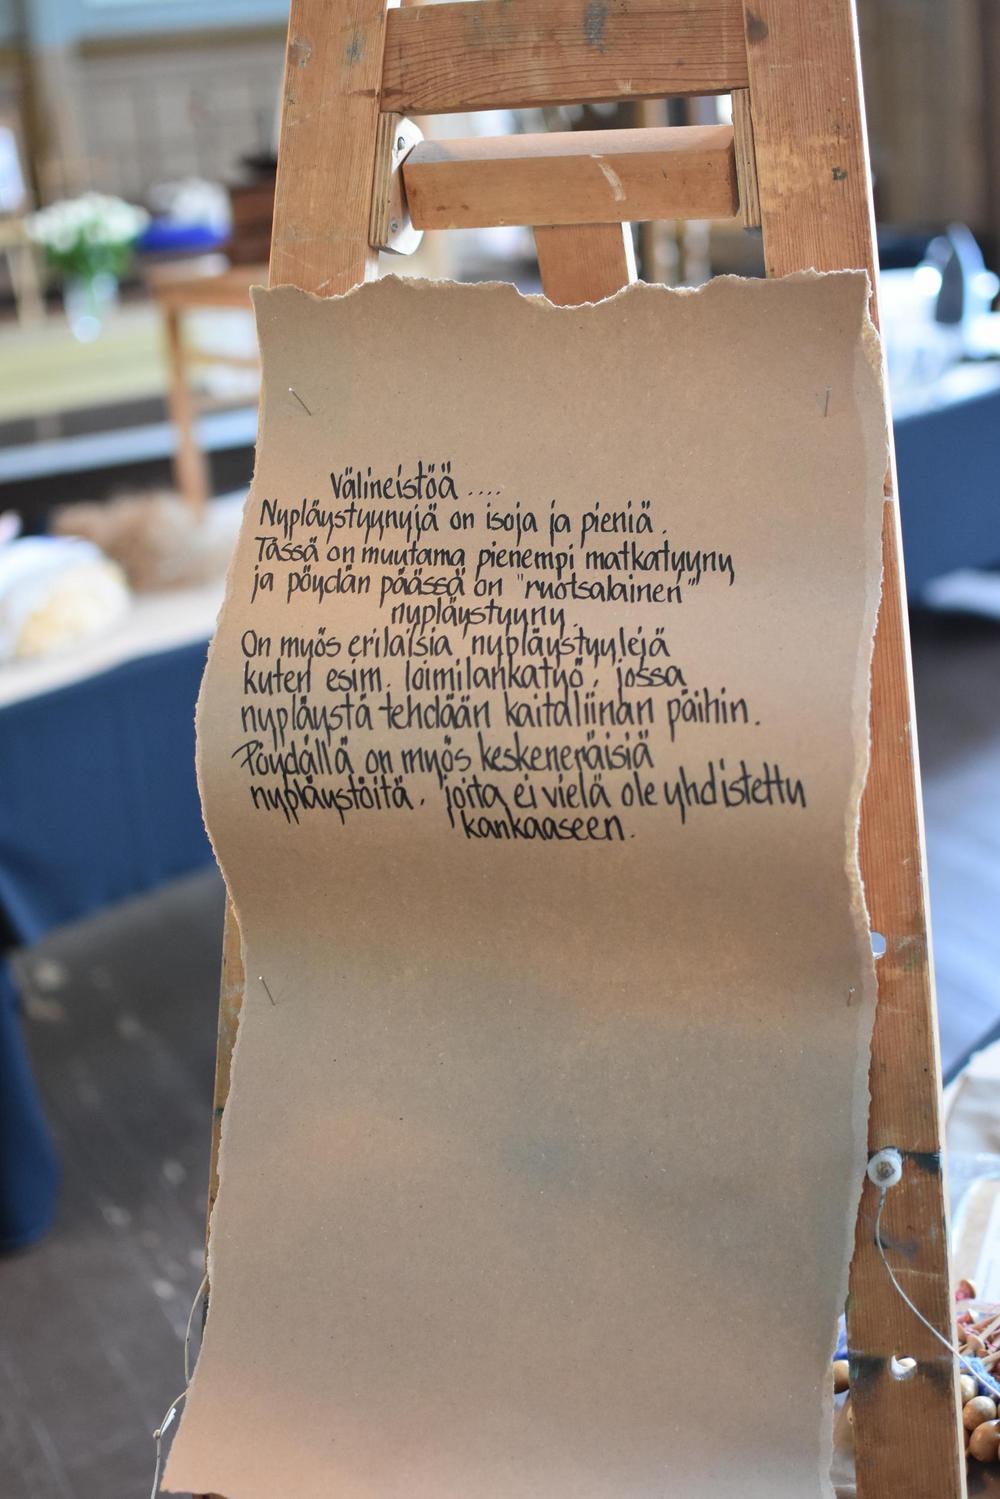 Välineistöä ....
Nypläystyynyjä on isoja ja pieniä.
Tässä on muutama pienempi matkatyyny
ja pöydän päässä on "ruotsalainen"
nypläystyyny.
On myös erilaisia nypläystyylejä
kuten esim. loimilankatyö, jossa
nypläystä tehdään kaitaliinan päihin.
Pöydällä on myös keskeneräisiä
nypläystöitä, joita ei vielä ole yhdistetty
kankaaseen.